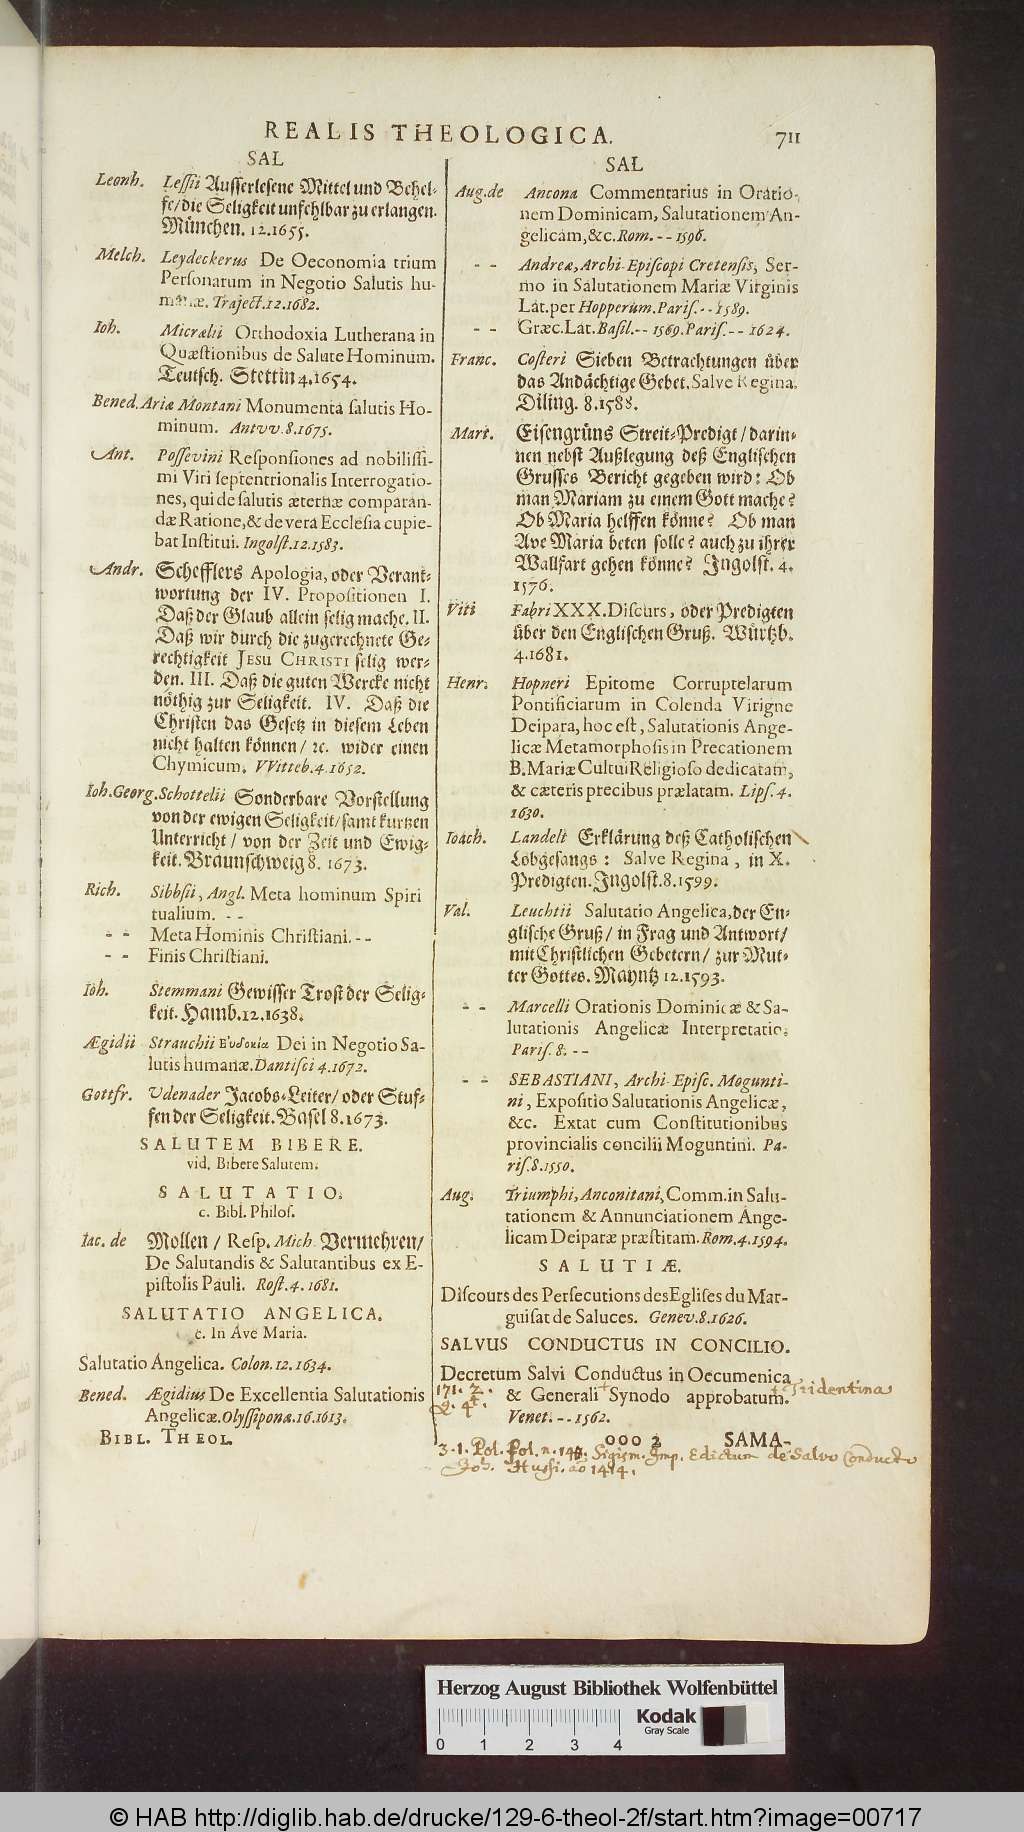 REALIS THEOLOGICA. 711
SAL
Leonh. Leſſii Auſſerleſene Mittel und Behel-
fe/die Seligkeit unfehlbar zu erlangen.
München. 12.1655.
Melch. Leydeckerus De Oeconomia trium
Perſonarum in Negotio Salutis hu-
manæ. Traject.12.1682.
Ioh. Micrælii Orthodoxia Lutherana in
Quæſtionibus de Salute Hominum.
Teutſch. Stettin 4.1654.
Bened. Ariæ Montani Monumenta ſalutis Ho-
minum. Antvv.8.1675.
Ant. Poſſevini Reſponſiones ad nobiliſſi-
mi Viri ſeptentrionalis Interrogatio-
nes, qui de ſalutis æternæ comparan-
dæ Ratione, & de vera Eccleſia cupie-
bat Inſtitui. Ingolſt.12.1583.
Andr. Schefflers Apologia, oder Verant-
wortung der IV. Propoſitionen I.
Daß der Glaub allein ſelig mache. II.
Daß wir durch die zugerechnete Ge-
rechtigkeit JESU CHRISTI ſelig wer-
den. III. Daß die guten Wercke nicht
nöthig zur Seligkeit. IV. Daß die
Chriſten das Geſetz in dieſem Leben
nicht halten können/ ꝛc. wider einen
Chymicum. VVitteb.4.1652.
Ioh. Georg. Schottelii Sonderbare Vorſtellung
von der ewigen Seligkeit/ſamt kurtzen
Unterricht/ von der Zeit und Ewig-
keit. Braunſchweig 8. 1673.
Rich. Sibbſii, Angl. Meta hominum Spiri
tualium. - -
- - Meta Hominis Chriſtiani. - -
- - Finis Chriſtiani.
Ioh. Stemmani Gewiſſer Troſt der Selig-
keit. Hamb.12.1638.
Ægidii Strauchii Ευδοκια Dei in Negotio Sa-
lutis humanæ. Dantiſci 4.1672.
Gottfr. Udenader Jacobs-Leiter/ oder Stuf-
fen der Seligkeit. Baſel 8.1673.
SALUTEM BIBERE.
vid. Bibere Salutem.
SALUTATIO.
c. Bibl. Philoſ.
Iac. de Mollen / Reſp. Mich. Vermehren/
De Salutandis & Salutantibus ex E-
piſtolis Pauli. Roſt. 4. 1681.
SALUTATIO ANGELICA.
c. In Ave Maria.
Salutatio Angelica. Colon. 12. 1634.
Bened. Ægidius De Excellentia Salutationis
Angelicæ. Olyſſiponæ.16.1613.
BIBL. THEOL.
SAL
Aug. de Ancona Commentarius in Oratio-
nem Dominicam, Salutationem An-
gelicam, &c. Rom. - - 1596.
- - Andreæ, Archi-Epiſcopi Cretenſis, Ser-
mo in Salutationem Mariæ Virginis
Lat. per Hopperum. Pariſ. - - 1589.
- - Græc. Lat. Baſil. - - 1569. Pariſ. - - 1624.
Franc. Coſteri Sieben Betrachtungen über
das Andächtige Gebet. Salve Regina.
Diling. 8.1588.
Mart. Eiſengrüns Streit-Predigt / darin-
nen nebſt Außlegung deß Engliſchen
Gruſſes Bericht gegeben wird: Ob
man Mariam zu einem Gott mache?
Ob Maria helffen könne? Ob man
Ave Maria beten ſolle? auch zu ihrer
Wallfart gehen könne? Ingolſt. 4.
1576.
Viti Fabri XXX. Diſcurs, oder Predigten
über den Engliſchen Gruß. Würtzb.
4.1681.
Henr. Hopneri Epitome Corruptelarum
Pontificiarum in Colenda Virigne
Deipara, hoc eſt, Salutationis Ange-
licæ Metamorphoſis in Precationem
B. Mariæ Cultui Religioſo dedicatam,
& cæteris precibus prælatam. Lipſ. 4.
1630.
Ioach. Landelt Erklärung deß Catholiſchen
Lobgeſangs: Salve Regina, in X.
Predigten. Ingolſt.8.1599.
Val. Leuchtii Salutatio Angelica, der En-
gliſche Gruß/ in Frag und Antwort/
mit Chriſtlichen Gebetern/ zur Mut-
ter Gottes. Mayntz 12.1593.
- - Marcelli Orationis Dominicæ & Sa-
lutationis Angelicæ Interpretatio.
Pariſ. 8. - -
- - SEBASTIANI, Archi-Epiſc. Mogunti-
ni, Expoſitio Salutationis Angelicæ,
&c. Extat cum Conſtitutionibus
provincialis concilii Moguntini. Pa-
riſ.8.1550.
Aug. Triumphi, Anconitani, Comm. in Salu-
tationem & Annunciationem Ange-
licam Deiparæ præſtitam. Rom.4.1594.
SALUTIÆ.
Diſcours des Perſecutions des Egliſes du Mar-
guiſat de Saluces. Genev.8.1626.
SALVUS CONDUCTUS IN CONCILIO.
Decretum Salvi Conductus in Oecumenica
& Generali Synodo approbatum. + Tridentina
171. 2.
Q. 4t.
Venet. - - 1562.
ooo 2 SAMA-
3.1. Pol. fol. n. Sigism. Imp. Edictum de Salvo Conductu
Joh. Hussi. ao 1414.
Herzog August Bibliothek Wolfenbüttel
Kodak
Gray Scale
0 1 2 3 4
© HAB http://diglib.hab.de/drucke/129-6-theol-2f/start.htm?image=00717